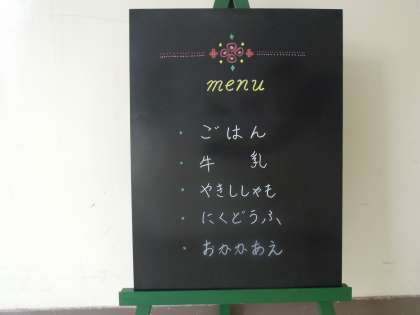 menu
・ ごはん
・ 牛 乳
・ やきししゃも
・ にくどうふ
・ おかかあえ